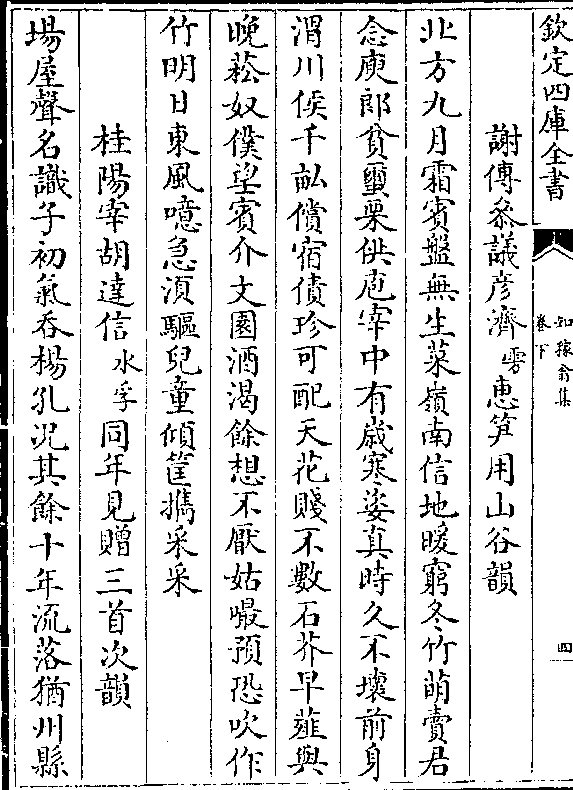 欽定四庫全書
知稼翁集
卷下
四
謝傅叅議彦濟雱惠笋用山谷韻
北方九月霜賓盤無生菜嶺南信地暖窮冬竹萌賣君
念庾郎貧蠒栗供庖宰中有歲寒姿真時久不壞前身
渭川侯千畝償宿債珍可配天花賤不數石芥早薤與
晚菘奴僕望賓介文園酒渴餘想不厭姑嘬預恐吹作
竹明日東風噫急湏驅兒童傾筐擕采采
桂陽宰胡達信水孚同年見贈三首次韻
塲屋聲名識子初氣吞楊孔况其餘十年流落猶州縣